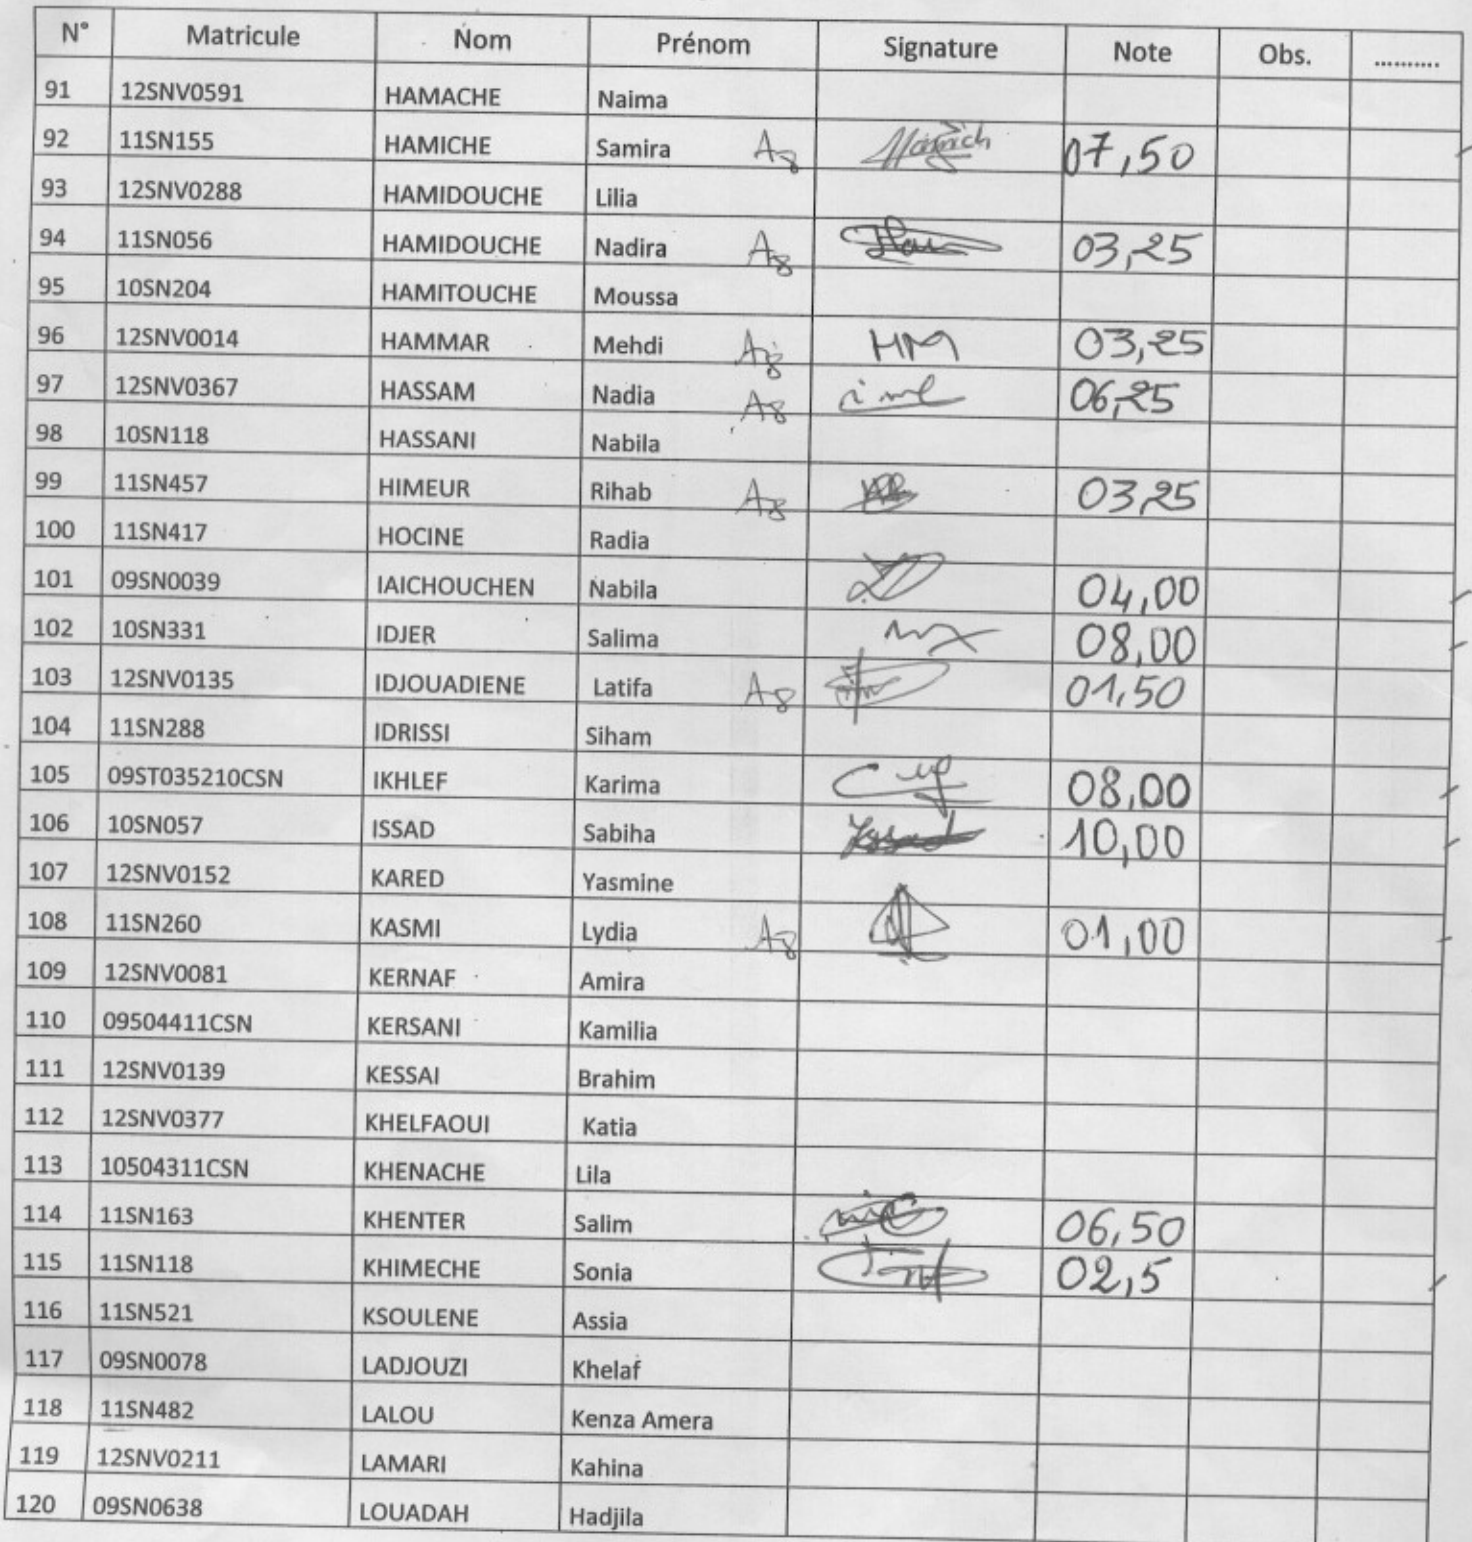 N° Matricule Nom Prénom Signature Note Obs. ..........
91 12SNV0591 HAMACHE Naima
92 11SN155 HAMICHE Samira 07,50
93 12SNV0288 HAMIDOUCHE Lilia
94 11SN056 HAMIDOUCHE Nadira 03,25
95 10SN204 HAMITOUCHE Moussa
96 12SNV0014 HAMMAR Mehdi HM 03,25
97 12SNV0367 HASSAM Nadia 06,25
98 10SN118 HASSANI Nabila
99 11SN457 HIMEUR Rihab 03,25
100 11SN417 HOCINE Radia
101 09SN0039 IAICHOUCHEN Nabila 04,00
102 10SN331 IDJER Salima 08,00
103 12SNV0135 IDJOUADIENE Latifa 01,50
104 11SN288 IDRISSI Siham
105 09ST035210CSN IKHLEF Karima 08,00
106 10SN057 ISSAD Sabiha Issad 10,00
107 12SNV0152 KARED Yasmine
108 11SN260 KASMI Lydia 01,00
109 12SNV0081 KERNAF Amira
110 09504411CSN KERSANI Kamilia
111 12SNV0139 KESSAI Brahim
112 12SNV0377 KHELFAOUI Katia
113 10504311CSN KHENACHE Lila
114 11SN163 KHENTER Salim 06,50
115 11SN118 KHIMECHE Sonia 02,5
116 11SN521 KSOULENE Assia
117 09SN0078 LADJOUZI Khelaf
118 11SN482 LALOU Kenza Amera
119 12SNV0211 LAMARI Kahina
120 09SN0638 LOUADAH Hadjila